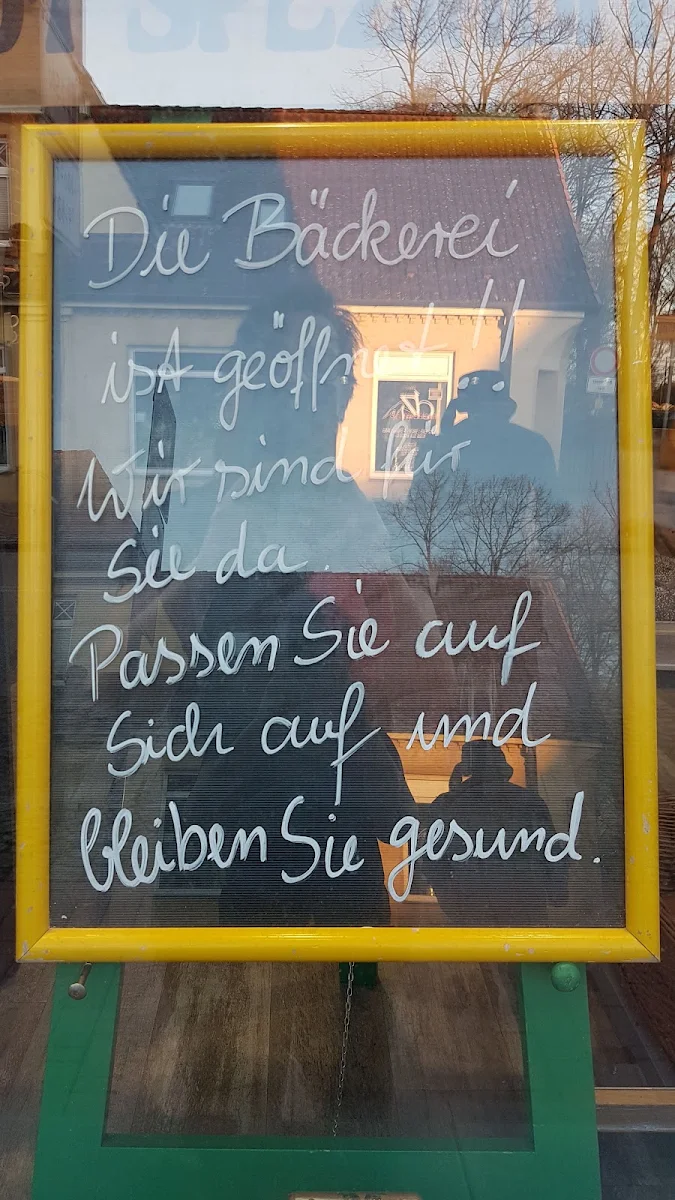 Die Bäckerei
ist geöffnet!!
Wir sind für
Sie da.
Passen Sie auf
Sich auf und
bleiben Sie gesund.